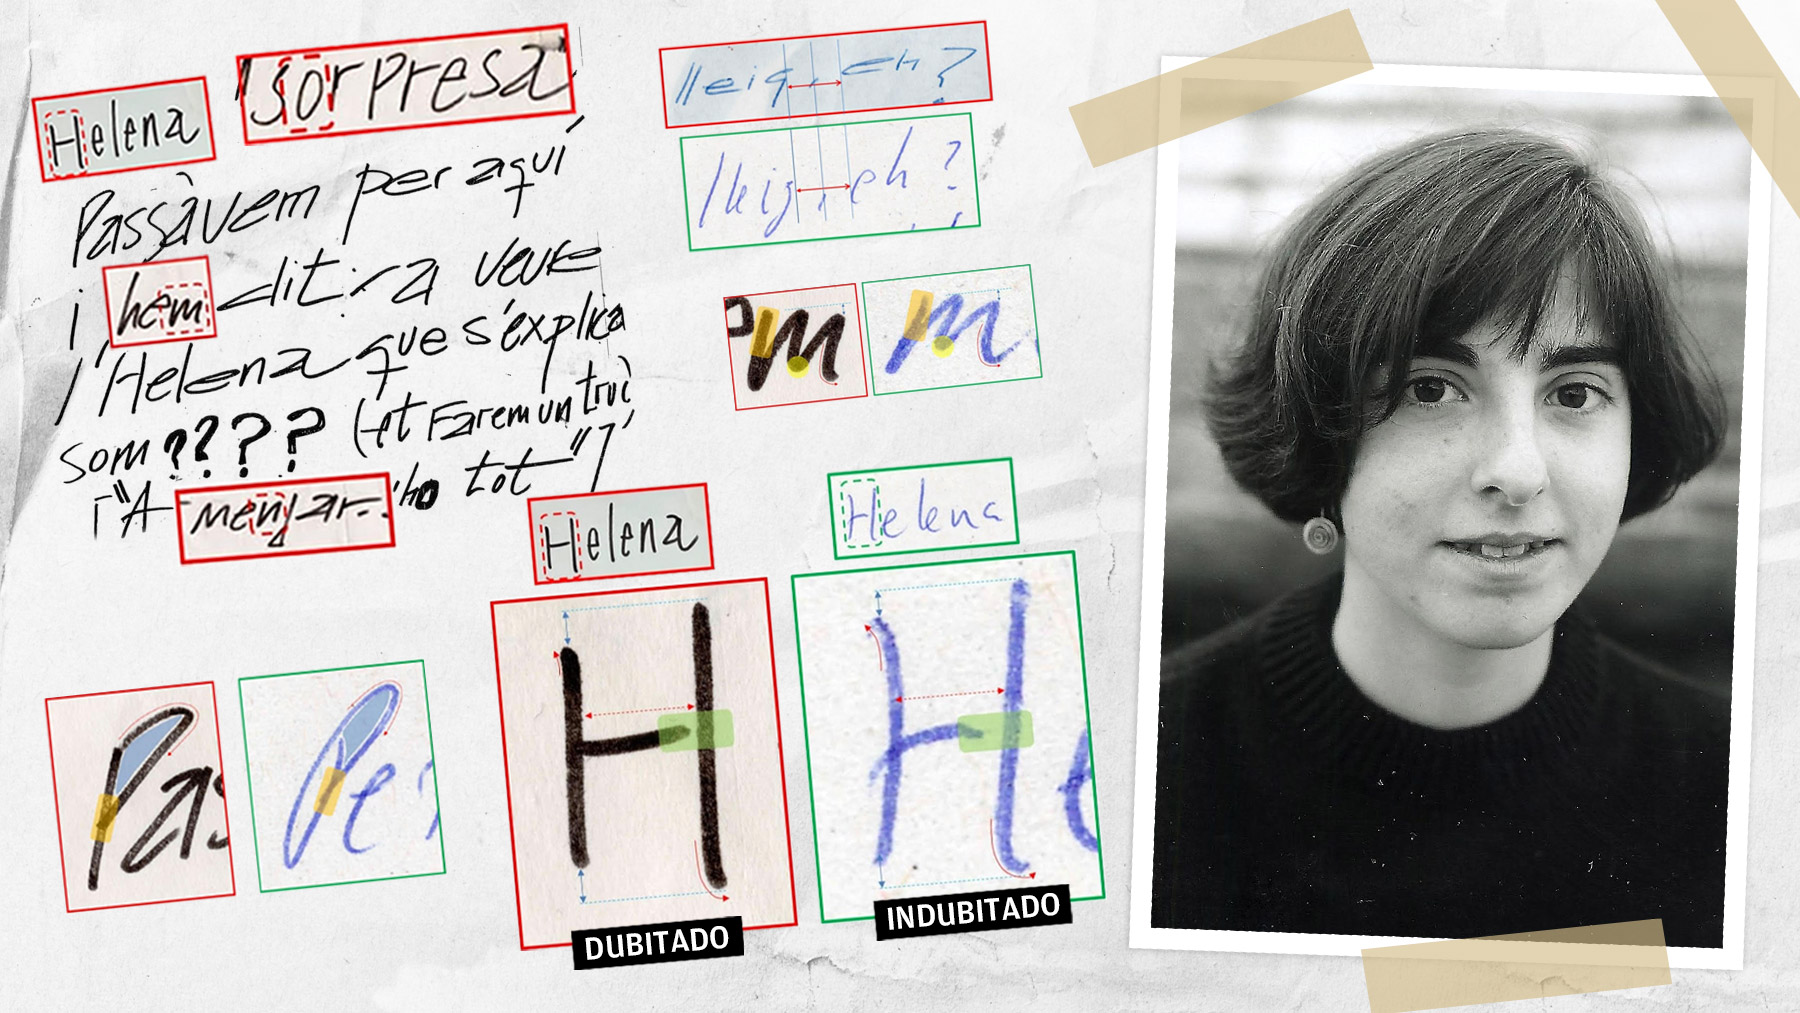 Helena "sorpresa"
Passàvem per aquí
i hem dit: -a veure
l'Helena que s'explica
som???? (-et farem un truc
i "A menjar-s'ho tot")
Helena
Helena
eh?
eh?
m
m
Pas
Pe
H
He
DUBITADO
INDUBITADO